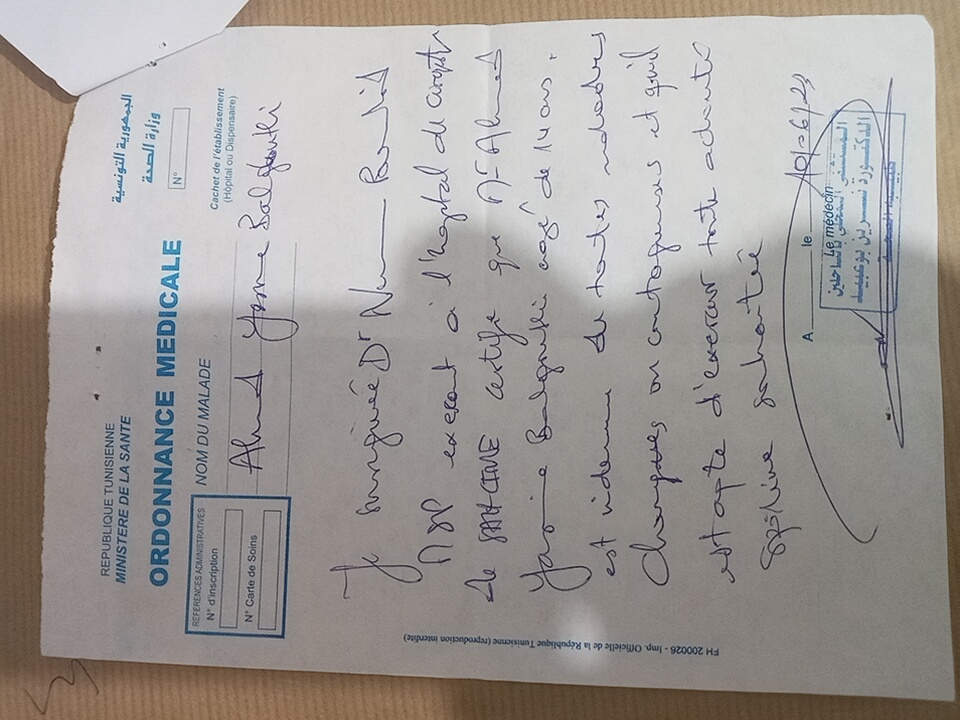 REPUBLIQUE TUNISIENNE
MINISTERE DE LA SANTE
الجمهورية التونسية
وزارة الصحة
ORDONNANCE MEDICALE
N°
REFERENCES ADMINISTRATIVES
N° d'inscription
N° Carte de Soins
NOM DU MALADE
Ahmed Yassine
Cachet de l'établissement
(Hôpital ou Dispensaire)
Je soussignée Dr
exerçant à l'hôpital de
de certifie que Mr Ahmed
Yassine agé de 14 ans.
est indemne de toutes maladies
chroniques ou contagieuses et qu'il
est apte d'exercer toute activité
sportive souhaitée
A le 10/06/23
Le médecin
الدكتورة نسرين
المستشفى المحلي بالساحلين
FH 200026 - Imp. Officielle de la République Tunisienne (reproduction interdite)